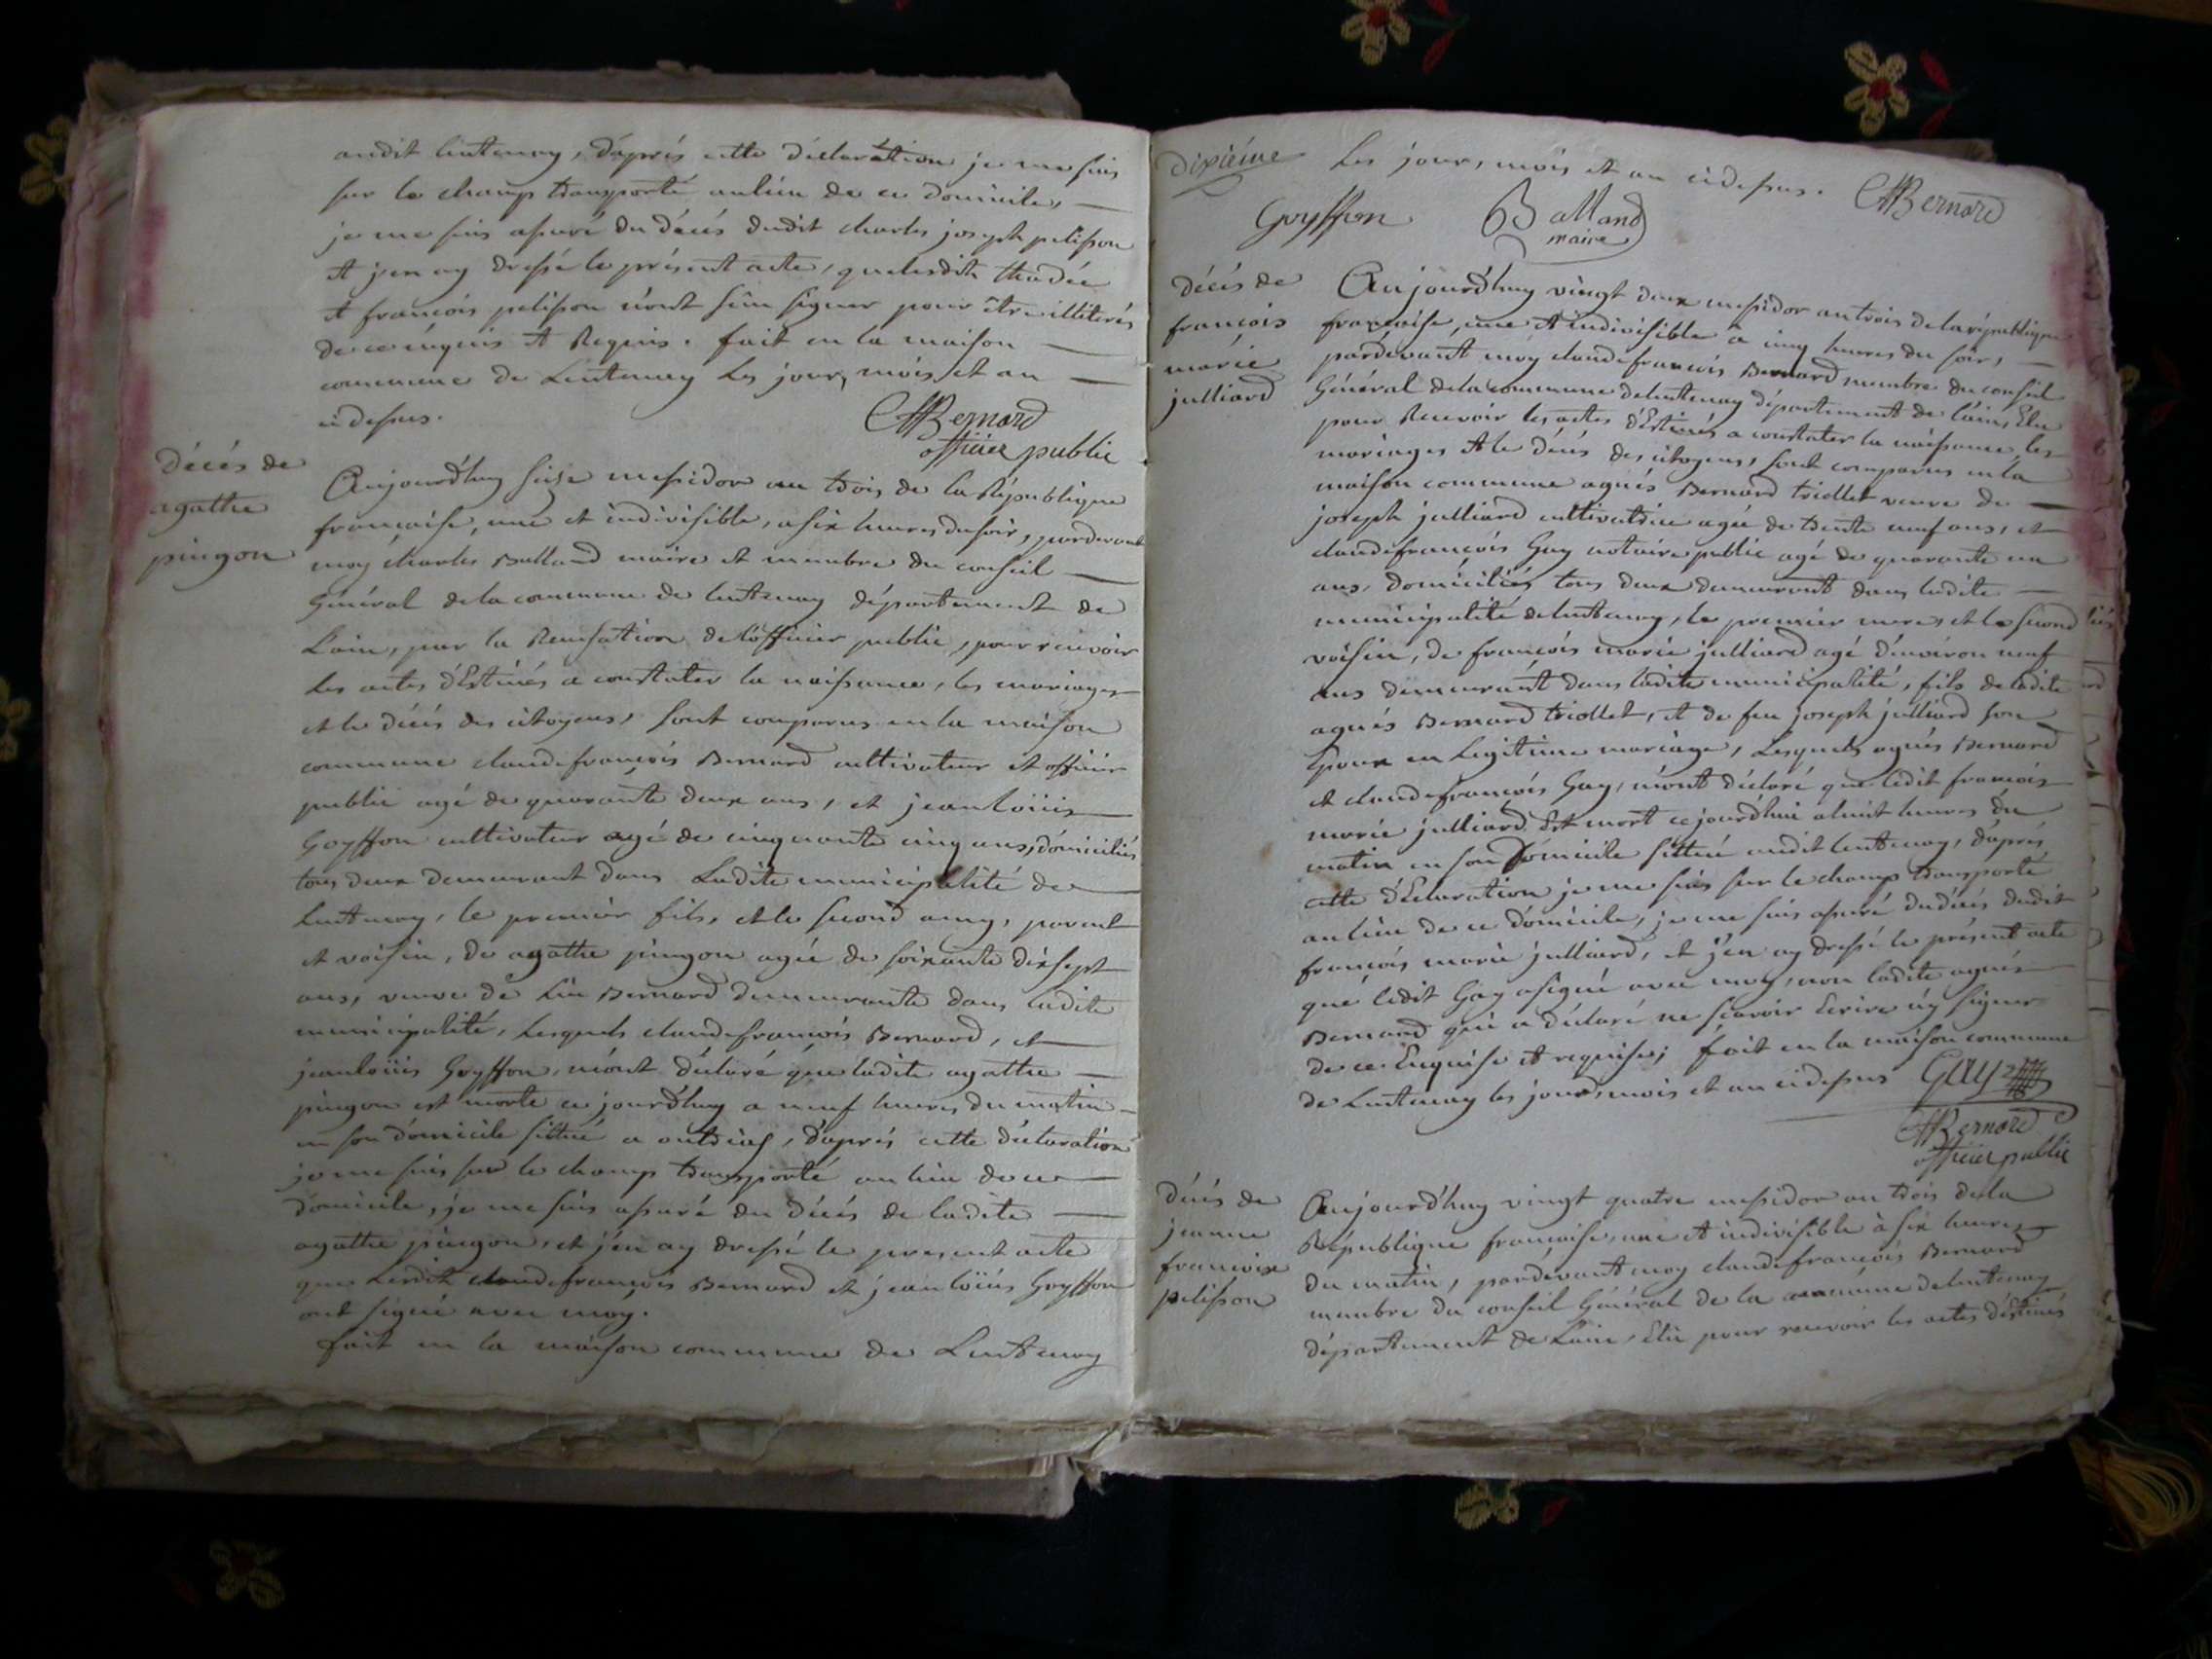 audit lentenay, d'aprés cette déclaration je me suis
sur le champ transporté au lieu de ce domicile,
je me suis assuré du décés dudit charles joseph pelisson
et j'en ay dressé le présent acte, que lesdits thadée
et françois pelisson n'ont sçeu signer pour être illiterés
de ce enquis et Requis. fait en la maison
commune de Lentenay Les jour, mois et an
cidessus.
Bernard
officier public
décés de
agathe
pingon
Aujourd'huy seize messidor an trois de la République
française, une et indivisible, a six heures du soir, pardevant
moy charles Balland maire et membre du conseil
Général de la commune de lentenay département de
Lain, par la Recusation de l'officier public, pour recevoir
les actes d'Estinés a constater la naissance, les mariages
et le décés des citoyens, sont comparus en la maison
commune claude françois Bernard cultivateur et officier
public agé de quarante deux ans, et jean loüis
Goyffon cultivateur agé de cinquante cinq ans, domiciliés
tous deux demeurant dans Ladite municipalité de
Lentenay, le premier fils, et le second amy, parent
et voisin, de agathe pingon agée de soixante dix sept
ans, veuve de Bernard demeurante dans ladite
municipalité, Lesquels claude françois Bernard, et
jean loüis Goyffon, m'ont déclaré que ladite agathe
pingon est morte ce jourd'huy a neuf heures du matin
en son domicile sittué a, d'aprés cette déclaration
je me suis sur le champ transporté au lieu de ce
domicile, je me suis assuré du décés de ladite
agathe pingon, et j'en ay dressé le present acte
que Lesdits claude françois Bernard et jean loüis Goyffon
ont signé avec moy.
fait en la maison commune de Lentenay
dixiéme
Les jour, mois et an cidessus.
Bernard
Goyffon
Balland
maire
décés de
françois
marie
julliard
Aujourd'huy vingt deux messidor an trois de la république
française, une et indivisible à cinq heures du soir,
pardevant moy claude françois Bernard membre du conseil
Général de la commune de lentenay département de lain, Elu
pour Recevoir les actes d'Estinés a constater la naissance, les
mariages et le décés des citoyens, sont comparus en la
maison commune agnés Bernard triollet veuve de
joseph julliard cultivatrice agée de trente neuf ans, et
claude françois Gay notaire public agé de quarante un
ans, domiciliés tous deux demeurant dans ladite
municipalité de lentenay, le premier mere, et le second
voisin, de françois marie julliard agé d'environ neuf
ans demeurant dans ladite municipalité, fils de ladite
agnés Bernard triollet, et de feu joseph julliard son
Epoux en Legitime mariage, Lesquels agnés Bernard
et claude françois Gay, m'ont déclaré que ledit françois
marie julliard Est mort ce jourd'hui a huit heures du
matin en son Domicile sittué audit lentenay, d'aprés
cette d'Eclaration je me suis sur le champ transporté
au lieu de ce domicile, je me suis assuré du décés dudit
françois marie julliard, et j'en ay dressé le présent acte
que ledit Gay a signé avec moy, non ladite agnés
Bernard qui a déclaré ne sçavoir Ecrire n'y signer
de ce Enquise et requise; fait en la maison commune
de Lentenay les jour, mois et an cidessus
Gay
Bernard
officier public
décés de
jeanne
françoise
pelisson
Aujourd'huy vingt quatre messidor an trois de la
République française, une et indivisible à six heures
du matin, pardevant moy claude françois Bernard
membre du conseil Général de la commune de lentenay
département de Lain, Elu pour recevoir les actes d'éstinés